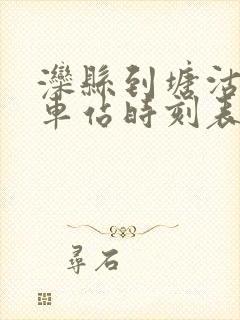 灤縣到塘沽
車佔時刻表
尋石